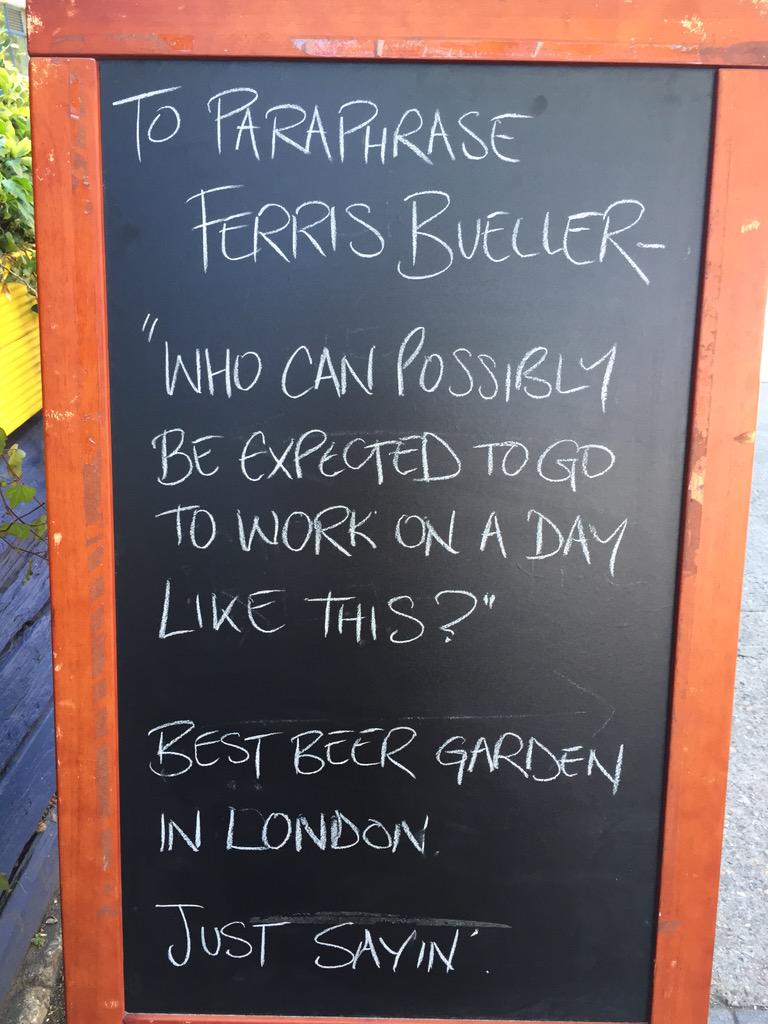 TO PARAPHRASE
FERRIS BUELLER-
"WHO CAN POSSIBLY
BE EXPECTED TO GO
TO WORK ON A DAY
LIKE THIS?"
BEST BEER GARDEN
IN LONDON.
JUST SAYIN'.